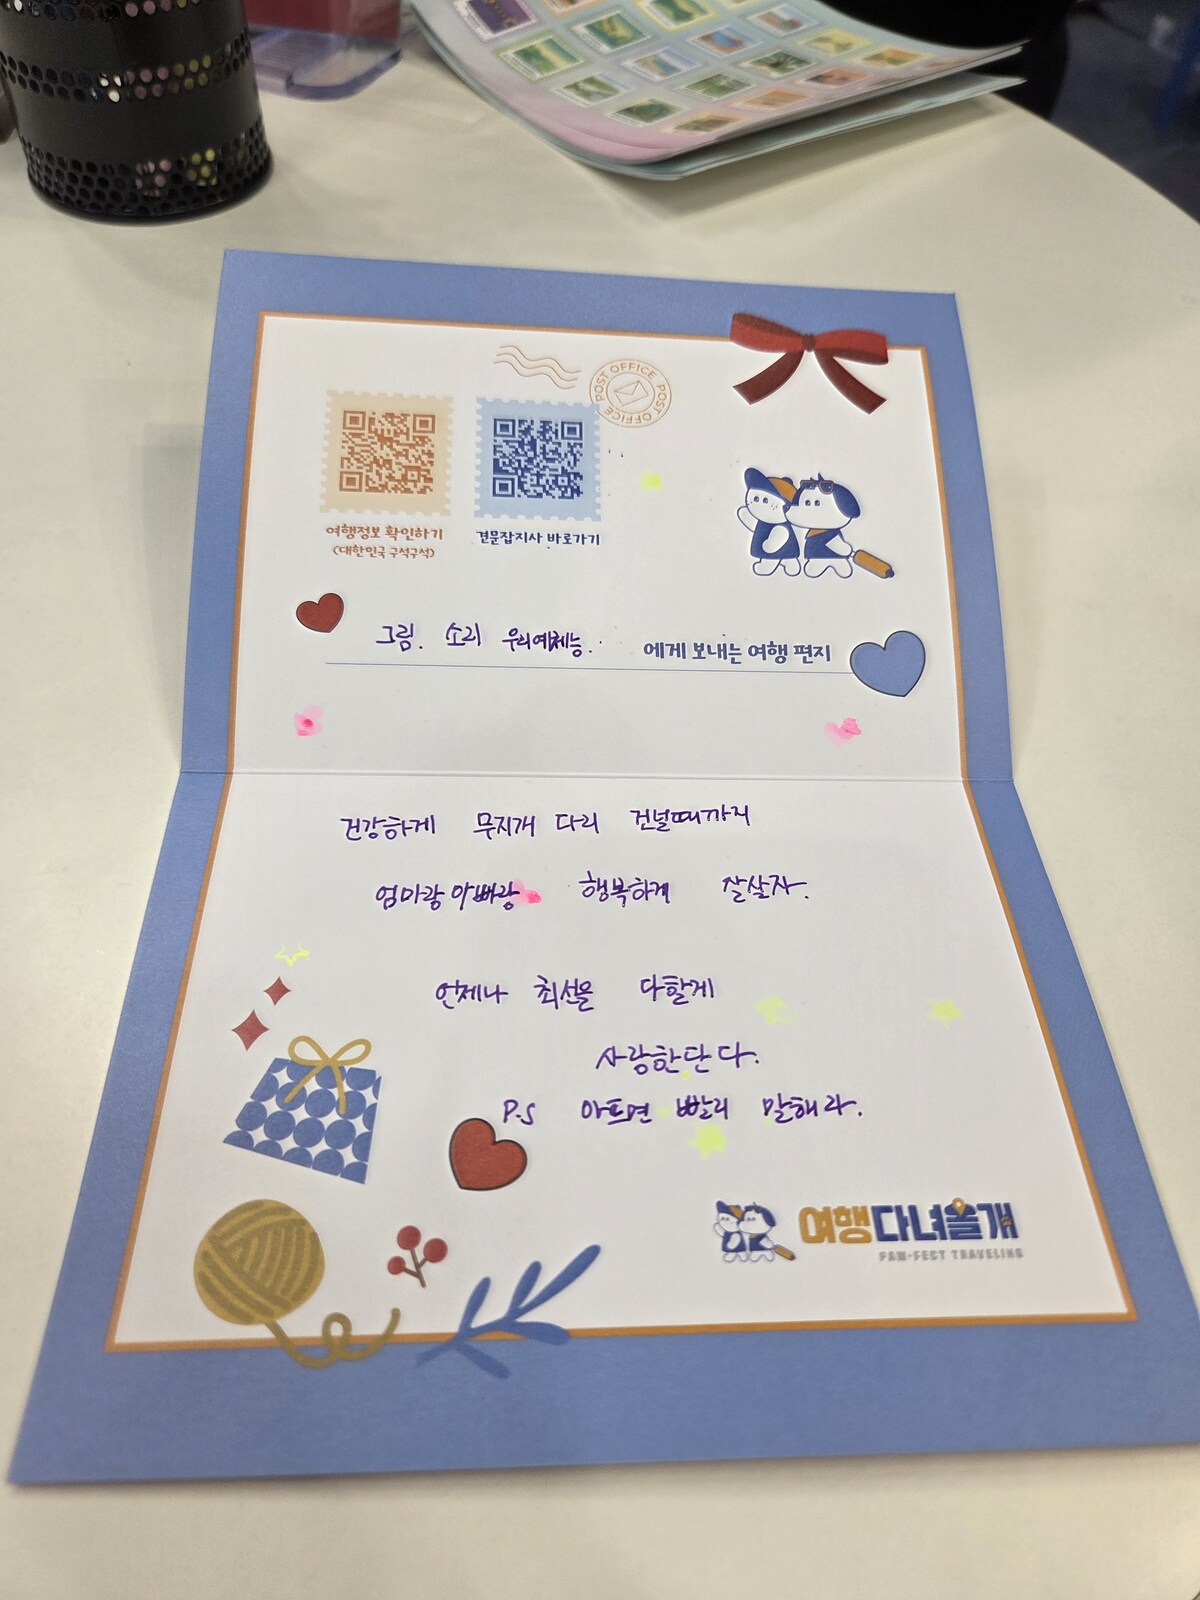 POST OFFICE POST OFFICE
여행정보 확인하기
(대한민국 구석구석)
견문잡지사 바로가기
그림. 소리 우리예체능. 에게 보내는 여행 편지
건강하게 무지개 다리 건널때까지
엄마랑 아빠랑 행복하게 잘살자.
언제나 최선을 다할게
사랑한단다.
P.S 아프면 빨리 말해라.
여행다녀올개
PAW-FECT TRAVELING